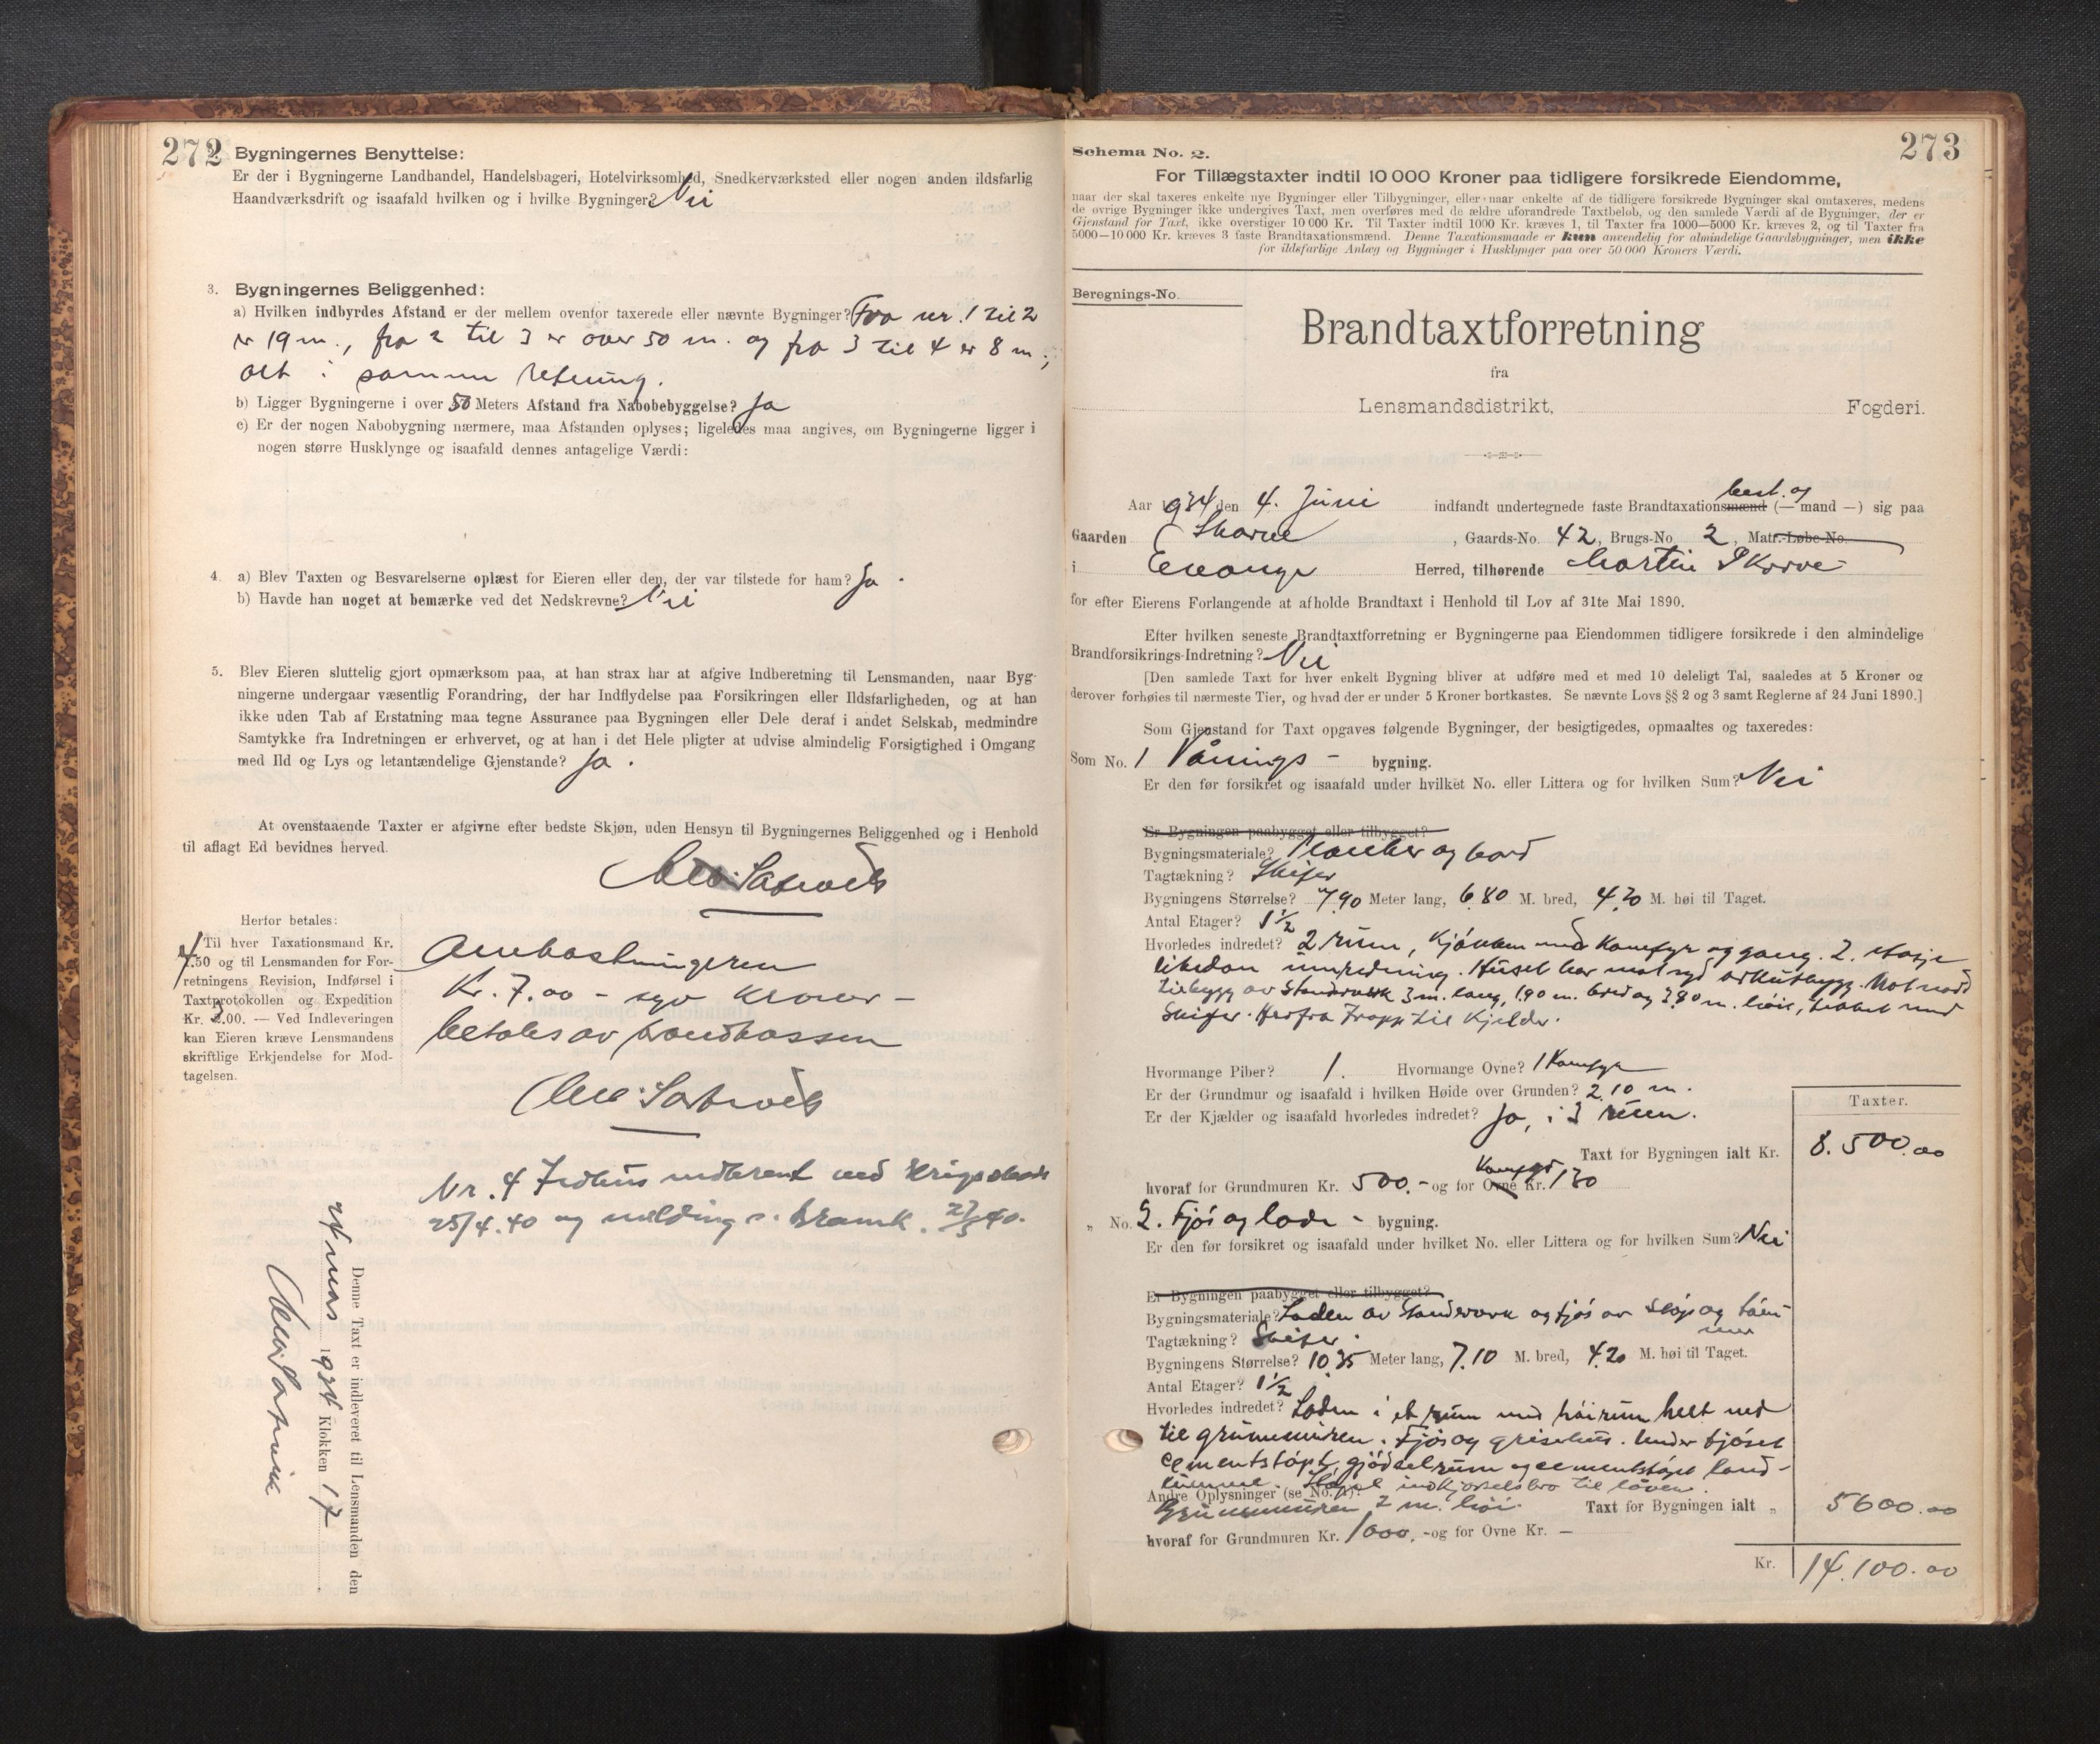 272
Bygningernes Benyttelse:
Er der i Bygningerne Landhandel, Handelsbageri, Hotelvirksomhed, Snedkerværksted eller nogen anden ildsfarlig
Haandværksdrift og isaafald hvilken og i hvilke Bygninger? Nei
3. Bygningernes Beliggenhed:
a) Hvilken indbyrdes Afstand er der mellem ovenfor taxerede eller nævnte Bygninger? Fra nr. 1 til 2
er 19 m., fra 2 til 3 er over 50 m. og fra 3 til 4 er 8 m.,
alt i samme retning.
b) Ligger Bygningerne i over 50 Meters Afstand fra Nabobebyggelse? Ja
c) Er der nogen Nabobygning nærmere, maa Afstanden oplyses; ligeledes maa angives, om Bygningerne ligger i
nogen større Husklynge og isaafald dennes antagelige Værdi:
4. a) Blev Taxten og Besvarelserne oplæst for Eieren eller den, der var tilstede for ham? Ja.
b) Havde han noget at bemærke ved det Nedskrevne? Nei
5. Blev Eieren sluttelig gjort opmærksom paa, at han strax har at afgive Indberetning til Lensmanden, naar Byg-
ningerne undergaar væsentlig Forandring, der har Indflydelse paa Forsikringen eller Ildsfarligheden, og at han
ikke uden Tab af Erstatning maa tegne Assurance paa Bygningen eller Dele deraf i andet Selskab, medmindre
Samtykke fra Indretningen er erhvervet, og at han i det Hele pligter at udvise almindelig Forsigtighed i Omgang
med Ild og Lys og letantændelige Gjenstande? Ja.
At ovenstaaende Taxter er afgivne efter bedste Skjøn, uden Hensyn til Bygningernes Beliggenhed og i Henhold
til aflagt Ed bevidnes herved.
Herfor betales:
Til hver Taxationsmand Kr.
4.50 og til Lensmanden for For-
retningens Revision, Indførsel i
Taxtprotokollen og Expedition
Kr. 3.00. — Ved Indleveringen
kan Eieren kræve Lensmandens
skriftlige Erkjendelse for Mod-
tagelsen.
Omkostningerne
Kr. 7.00 - syv kroner -
betales av brandkassen
Nr. 4 Ildhus nedbrent ved krigsskade
25/4.40 og melding s. brannk. 27/5 40.
Denne Taxt er indleveret til Lensmanden den
24 mars 1934 Klokken 17
273
Schema No. 2.
For Tillægstaxter indtil 10 000 Kroner paa tidligere forsikrede Eiendomme,
naar der skal taxeres enkelte nye Bygninger eller Tilbygninger, eller naar enkelte af de tidligere forsikrede Bygninger skal omtaxeres, medens
de øvrige Bygninger ikke undergives Taxt, men overføres med de ældre uforandrede Taxtbeløb, og den samlede Værdi af de Bygninger, der er
Gjenstand for Taxt, ikke overstiger 10 000 Kr. Til Taxter indtil 1000 Kr. kræves 1, til Taxter fra 1000—5000 Kr. kræves 2, og til Taxter fra
5000—10 000 Kr. kræves 3 faste Brandtaxationsmænd. Denne Taxationsmaade er kun anvendelig for almindelige Gaardsbygninger, men ikke
for ildsfarlige Anlæg og Bygninger i Husklynger paa over 50 000 Kroners Værdi.
Beregnings-No.
Brandtaxtforretning
fra
Lensmandsdistrikt, Fogderi.
Aar 1934 den 4. Juni indfandt undertegnede faste Brandtaxationsmænd best. og (— mand —) sig paa
Gaarden Skarve, Gaards-No. 42, Brugs-No. 2, Matr.-Løbe-No.
i Evanger Herred, tilhørende Martin Skorve
for efter Eierens Forlangende at afholde Brandtaxt i Henhold til Lov af 31te Mai 1890.
Efter hvilken seneste Brandtaxtforretning er Bygningerne paa Eiendommen tidligere forsikrede i den almindelige
Brandforsikrings-Indretning? Nei
[Den samlede Taxt for hver enkelt Bygning bliver at udføre med et med 10 deleligt Tal, saaledes at 5 Kroner og
derover forhøies til nærmeste Tier, og hvad der er under 5 Kroner bortkastes. Se nævnte Lovs §§ 2 og 3 samt Reglerne af 24 Juni 1890.]
Som Gjenstand for Taxt opgaves følgende Bygninger, der besigtigedes, opmaaltes og taxeredes:
Som No. 1 Vånings - bygning.
Er den før forsikret og isaafald under hvilket No. eller Littera og for hvilken Sum? Nei
Er Bygningen paabygget eller tilbygget?
Bygningsmateriale? Planker og bord
Tagtækning? Skifer
Bygningens Størrelse? 7.90 Meter lang, 6.80 M. bred, 4.20 M. høi til Taget.
Antal Etager? 1 1/2
Hvorledes indredet? 2 rum, kjøkken med komfyr og gang. 2. etasje
likedan innredning. Huset har mot syd arkutbygg. Mot nord
tilbygg av standverk 3 m. lang, 1.90 m. bred og 3.80 m. høit, tekket med
Skifer. Herfra trapp til kjelder.
Hvormange Piber? 1. Hvormange Ovne? 1 Komfyr
Er der Grundmur og isaafald i hvilken Høide over Grunden? 2.10 m.
Er der Kjælder og isaafald hvorledes indredet? Ja, i 3 rum.
Taxter.
Taxt for Bygningen ialt Kr. 8.500.00
hvoraf for Grundmuren Kr. 500.- og for Ovne Komfyr Kr. 130
„ No. 2. Fjøs og lade - bygning.
Er den før forsikret og isaafald under hvilket No. eller Littera og for hvilken Sum? Nei
Er Bygningen paabygget eller tilbygget?
Bygningsmateriale? Laden av standverk og fjøs av støp og tøm-
mer
Tagtækning? Skifer.
Bygningens Størrelse? 10.35 Meter lang, 7.10 M. bred, 4.20 M. høi til Taget.
Antal Etager? 1 1/2
Hvorledes indredet? Laden i et rum med høirum helt ned
til grunnmuren. Fjøs og grisehus. Under fjøset
cementstøpt gjødselrum og cementstøpt land-
kumme. innkjørselsbro til løven.
Andre Oplysninger (se No. )?
Grunnmuren 2 m. høi. Taxt for Bygningen ialt „ 5600.00
hvoraf for Grundmuren Kr. 1000.- og for Ovne Kr. —
Kr. 14.100.00